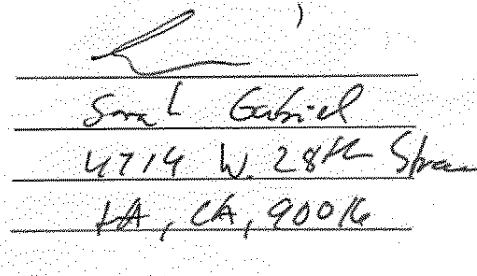 Sarah Gabriel
4714 W. 28th Stree
LA, CA, 90016